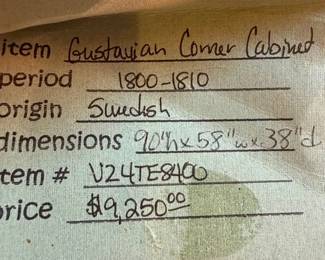 item Gustavian Corner Cabinet
period 1800-1810
origin Swedish
dimensions 90"h x 58"w x 38"d
item # V24TE8400
price $9,250.00